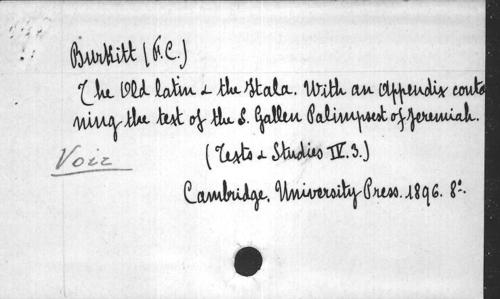 Burkitt (F.C.)
The Old Latin & the Itala. With an Appendix contai
ning the text of the S. Gallen Palimpsest of Jeremiah.
Voir
(Texts & Studies IV.3.)
Cambridge, University Press. 1896. 8º.